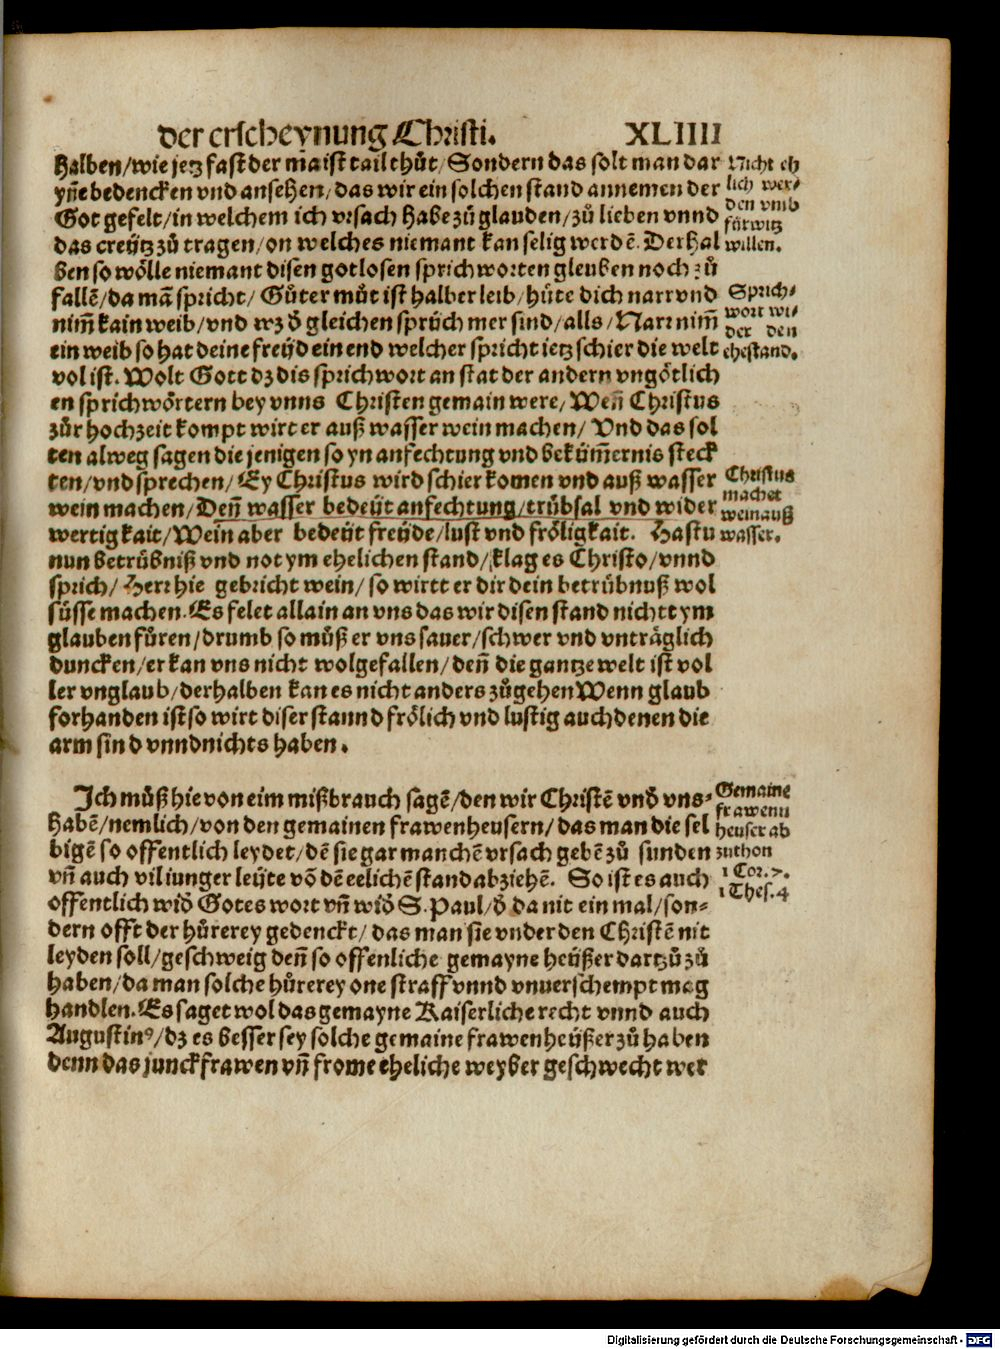 der erscheynung Christi. XLIIII
halben/wie jetz fast der maist tail thůt/Sondern das solt man dar
yñe bedencken vnd ansehen/das wir ein solchen stand annemen der
Got gefelt/in welchem ich vrsach habe zů glauden/zů lieben vnnd
das creytz zů tragen/on welches niemant kan selig werdē. Derhal
ben so wölle niemant disen gotlosen sprichworten gleuben noch zů
fallē/da mā spricht/ Gůter můt ist halber leib/hüte dich narr vnd
nim̃ kain weib/vnd wz d̕ gleichen sprüch mer sind/alls/Narr nim̃
ein weib so hat deine freyd ein end welcher spricht ietz schier die welt
vol ist. Wolt Gott dz dis sprichwort an stat der andern vngötlich
en sprichwörtern bey vnns Christen gemain were/Weñ Christus
zůr hochzeit kompt wirt er auß wasser wein machen/ Vnd das sol
ten alweg sagen die jenigen so yn anfechtung vnd bekům̃ernis steck
ten/vnd sprechen/Ey Christus wird schier komen vnd auß wasser
wein machen/Deñ wasser bedeüt anfechtung/trůbsal vnd wider
wertigkait/Wein aber bedeüt freyde/lust vnd fröligkait. Hastu
nun betrübniß vnd not ym ehelichen stand/klag es Christo/vnnd
sprich/Herr hie gebricht wein/so wirtt er dir dein betrübnuß wol
süsse machen. Es felet allain an vns das wir disen stand nichtt ym
glauben füren/drumb so můß er vns sauer/schwer vnd vnträglich
duncken/er kan vns nicht wolgefallen/deñ die gantze welt ist vol
ler vnglaub/derhalben kan es nicht anders zůgehen Wenn glaub
forhanden ist so wirt diser stannd frölich vnd lustig auch denen die
arm sind vnnd nichts haben.
Nicht eh
lich wer/
den vmb
fürwitz
willen.
Sprich/
wort wi/
der den
ehestand.
Christus
machet
wein auß
wasser.
Ich můß hie von eim mißbrauch sagē/den wir Christē vnd̕ vns-
habē/nemlich/von den gemainen frawenheusern/das man die sel
bigē so offentlich leydet/dē sie gar manchē vrsach gebē zů sunden
vñ auch vil iunger leüte vō dē eelichē stand abziehē. So ist es auch
offentlich wid̕ Gotes wort vñ wid̕ S. Paul/d̕ da nit ein mal/son-
dern offt der hůrerey gedenckt/das man sie vnder den Christē nit
leyden soll/geschweig deñ so offenliche gemayne heüßer dartzů zů
haben/da man solche hůrerey one straff vnnd vnuerschempt mag
handlen. Es saget wol das gemayne Kaiserliche recht vnnd auch
Augustinꝰ/dz es besser sey solche gemaine frawenheüßer zů haben
denn das junckfrawen vñ frome eheliche weyber geschwecht wer
Gemaine
frawenn
heuser ab
zuthon
1 Cor. 7.
1 Thes. 4
Digitalisierung gefördert durch die Deutsche Forschungsgemeinschaft - DFG